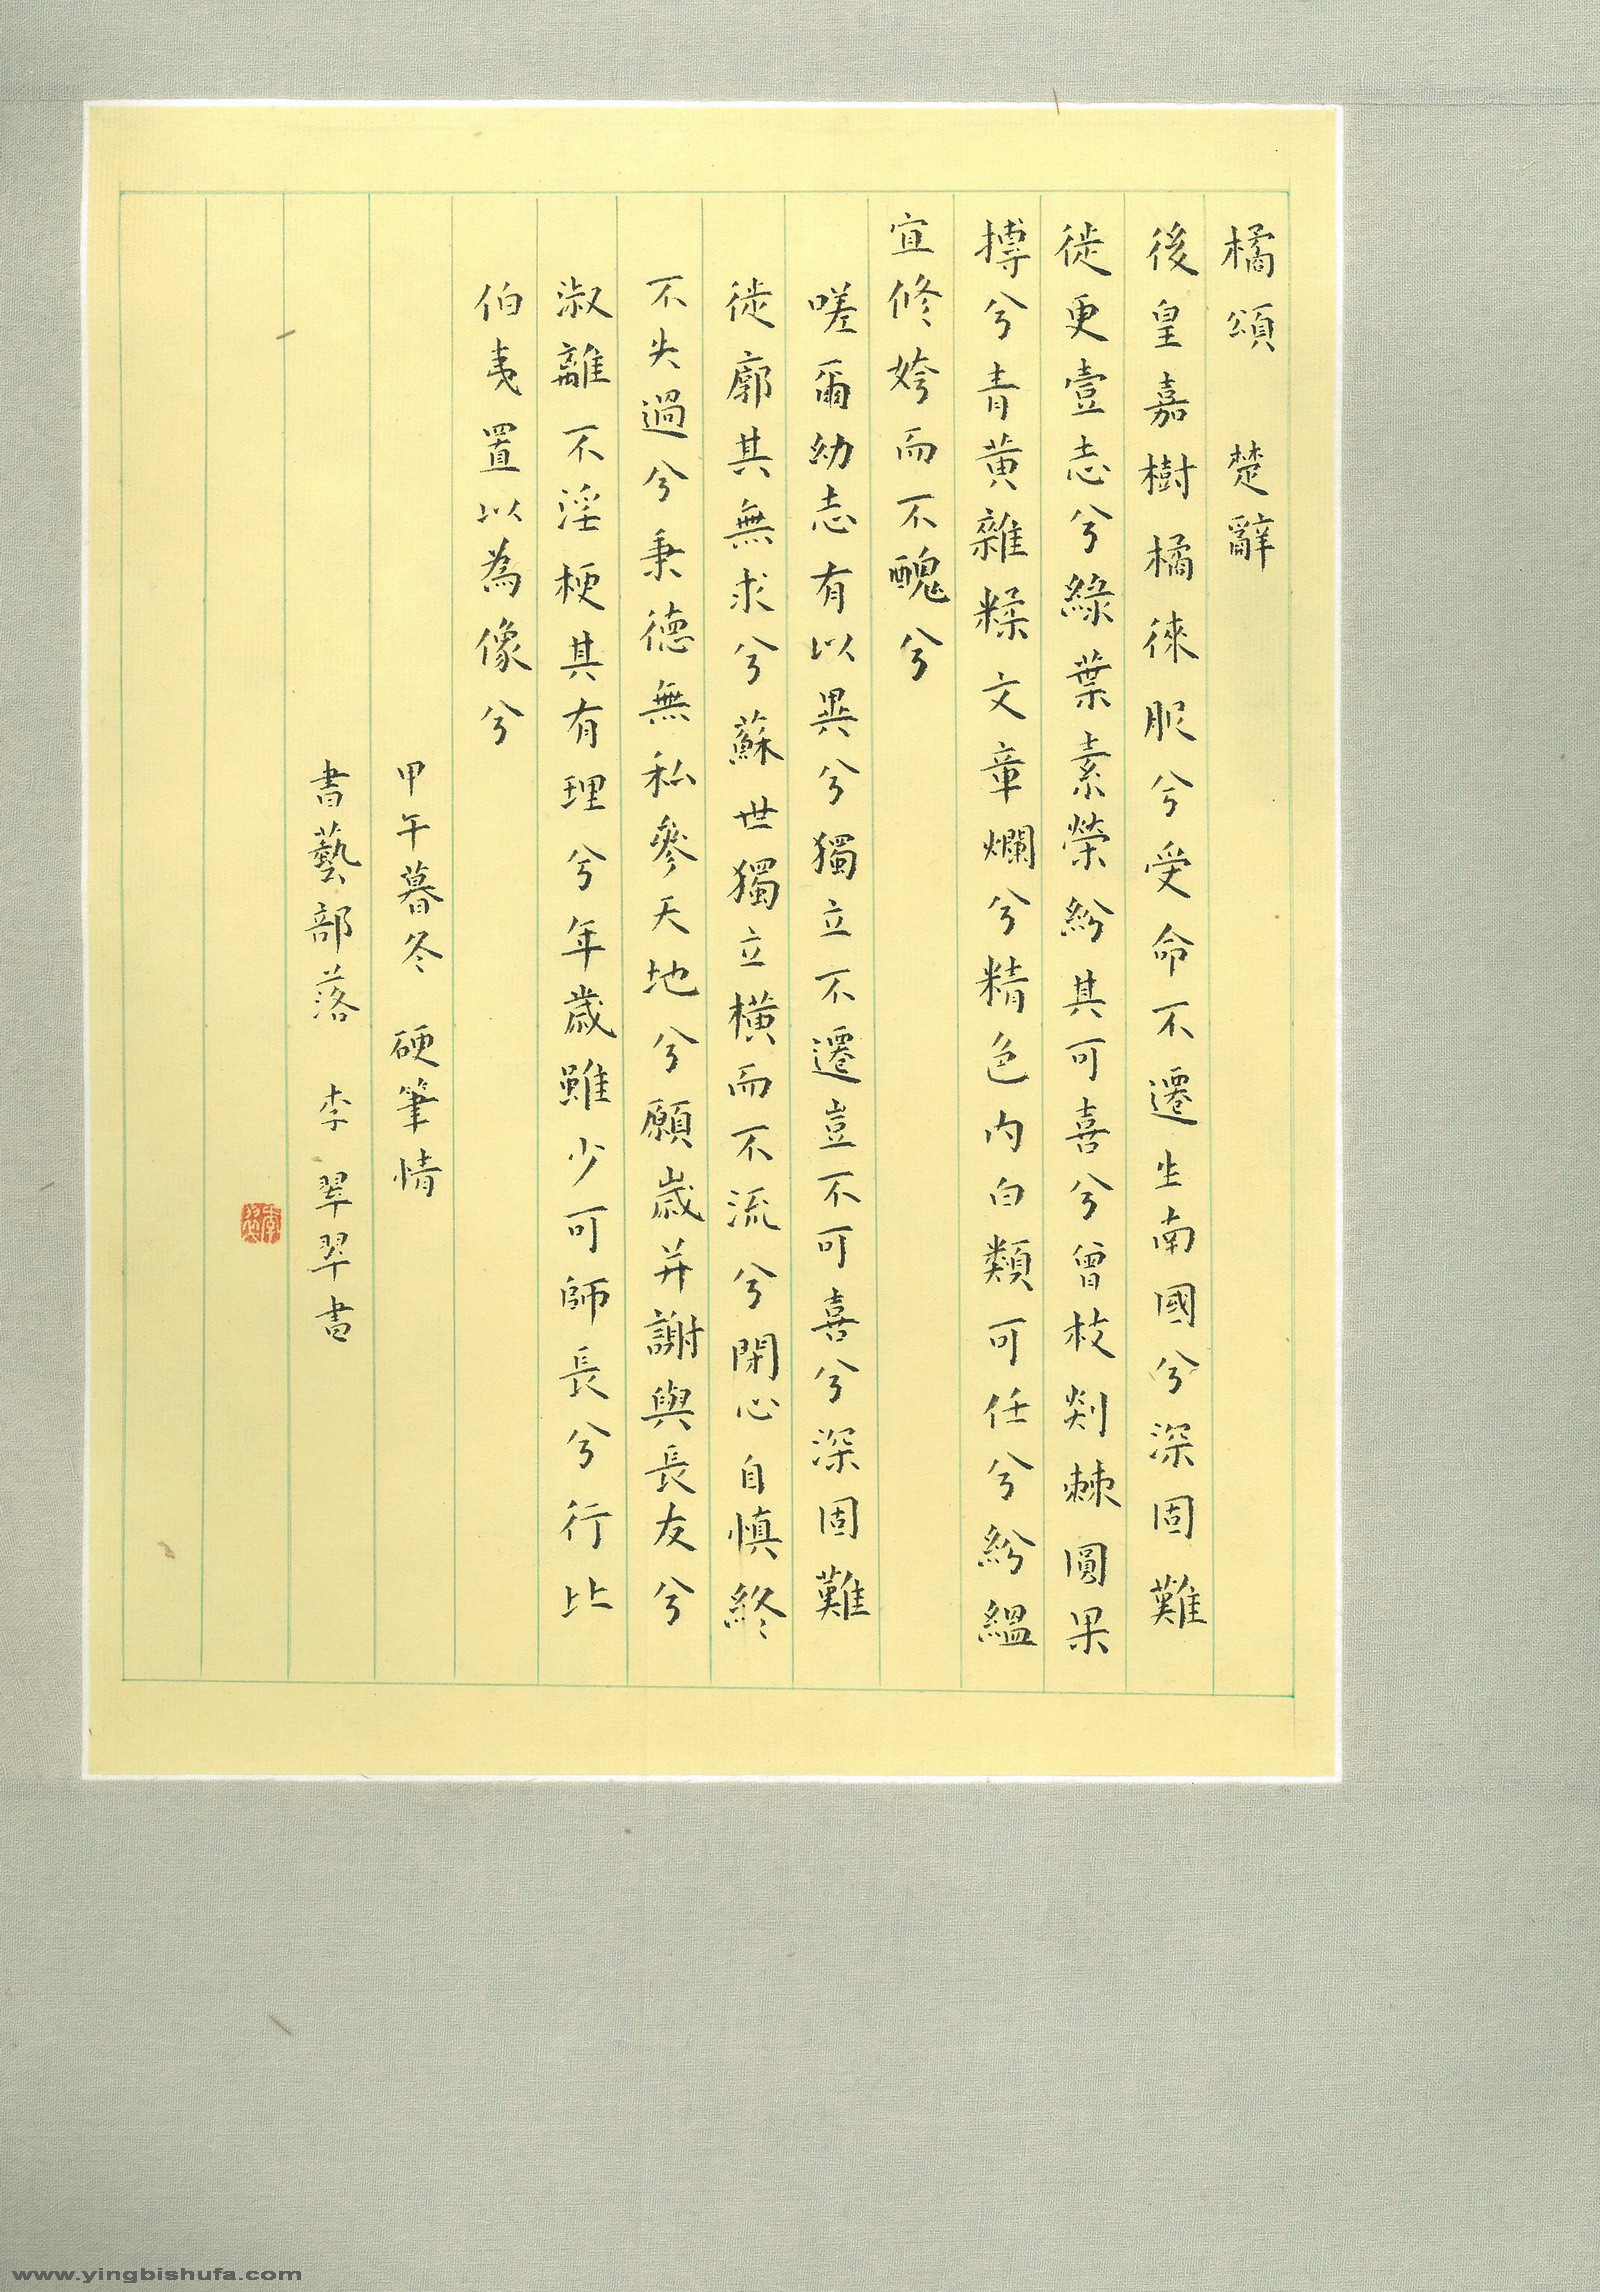 橘頌　楚辭
後皇嘉樹橘徠服兮受命不遷生南國兮深固難
徙更壹志兮綠葉素榮紛其可喜兮曾枝剡棘圓果
摶兮青黃雜糅文章爛兮精色內白類可任兮紛緼
宜修姱而不醜兮
嗟爾幼志有以異兮獨立不遷豈不可喜兮深固難
徙廓其無求兮蘇世獨立橫而不流兮閉心自慎終
不失過兮秉德無私參天地兮願歲并謝與長友兮
淑離不淫梗其有理兮年歲雖少可師長兮行比
伯夷置以為像兮
甲午暮冬　硬筆情
書藝部落　李翠翠書
www.yingbishufa.com